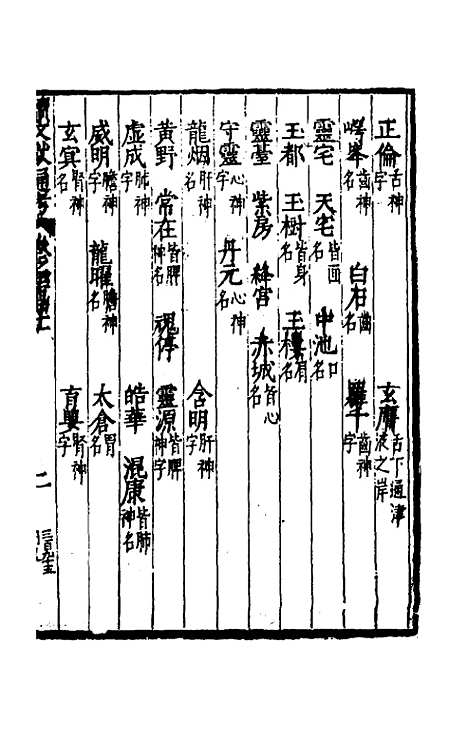 正倫舌神字　玄膺舌下通津液之岸
崿峯齒神名　白石齒名　羅千齒神字
靈宅　天宅皆面名　中池口名
玉都　玉樹皆身名　玉樓肩名
靈臺　紫房　絳宮　赤城皆心名
守靈心神字　丹元心神名
龍烟肝神名　含明肝神字
黄野　常在皆脾神名　魂停　靈源皆脾神字
虚成肺神字　皓華　混康皆肺神名
威明膽神字　龍曜膽神名　太倉胃名
玄㝠腎神名　育嬰腎神字
二